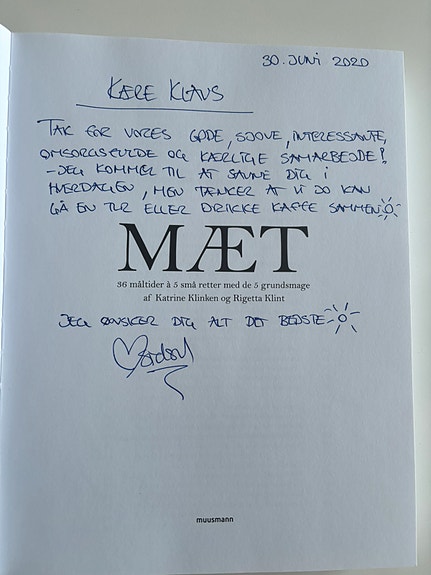 30. JUNI 2020
KÆRE KLAUS
TAK FOR VORES GODE, SJOVE, INTERESSANTE,
OMSORGSFULDE OG KÆRLIGE SAMARBEJDE!
- JEG KOMMER TIL AT SAVNE DIG I
HVERDAGEN, MEN TÆNKER AT VI DO KAN
GÅ EN TUR ELLER DRIKKE KAFFE SAMMEN
MÆT
36 måltider à 5 små retter med de 5 grundsmage
af Katrine Klinken og Rigetta Klint
JEG ØNSKER DIG ALT DET BEDSTE
muusmann